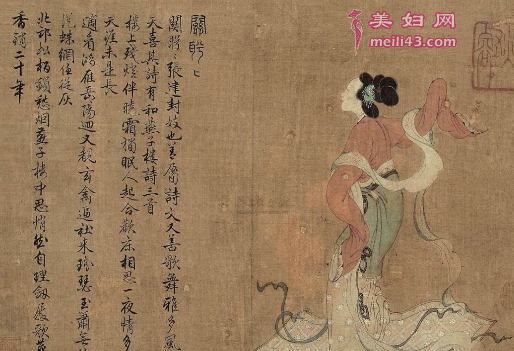 美妇网
meili43.com
關盻〻
關盻張建封妓也善屬詩文又善歌舞雅多風
天喜其詩有和燕子樓詩三首
樓上殘燈伴曉霜獨眠人起合歡床相思一夜情多
天涯未是長
適看鴻雁岳陽迴又覩玄禽逼社來瑤瑟玉簫無
蛛網任從灰
北邙松柏鎖愁烟燕子樓中思悄然自理劍履歌
香銷二十年